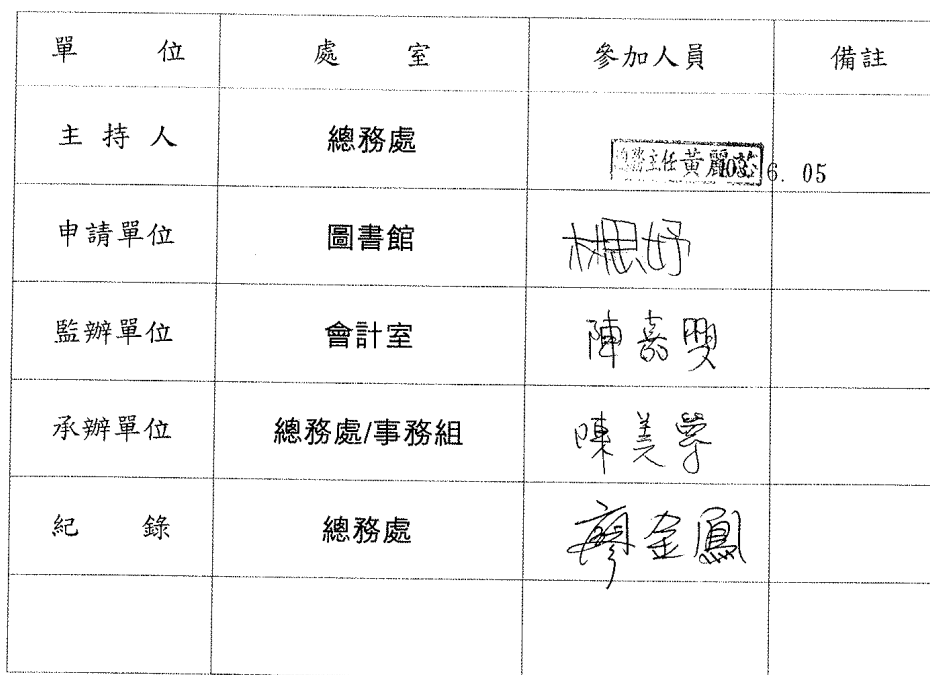 單 位 處 室 參加人員 備註
主 持 人 總務處 總務主任黃麗 103. 6. 05
申請單位 圖書館 林思妤
監辦單位 會計室 陳嘉
承辦單位 總務處/事務組 陳美
紀 錄 總務處 廖金鳳